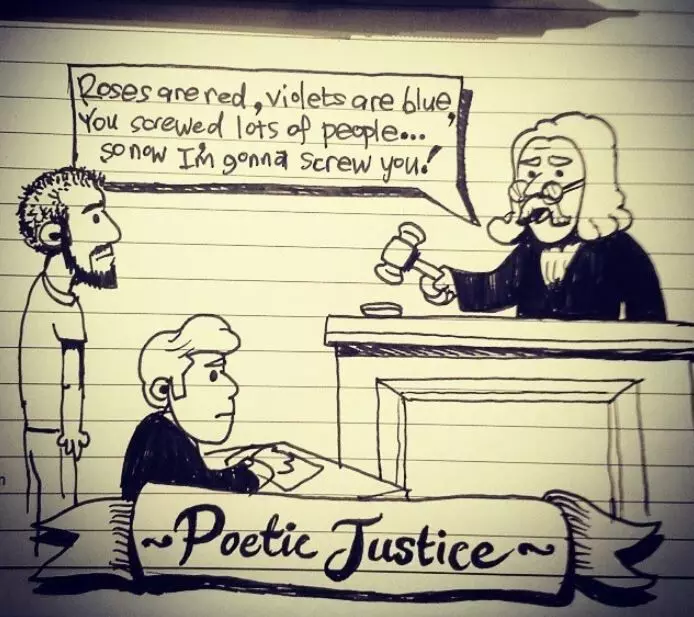 Roses are red, violets are blue,
You screwed lots of people...
so now I'm gonna screw you!
~Poetic Justice~